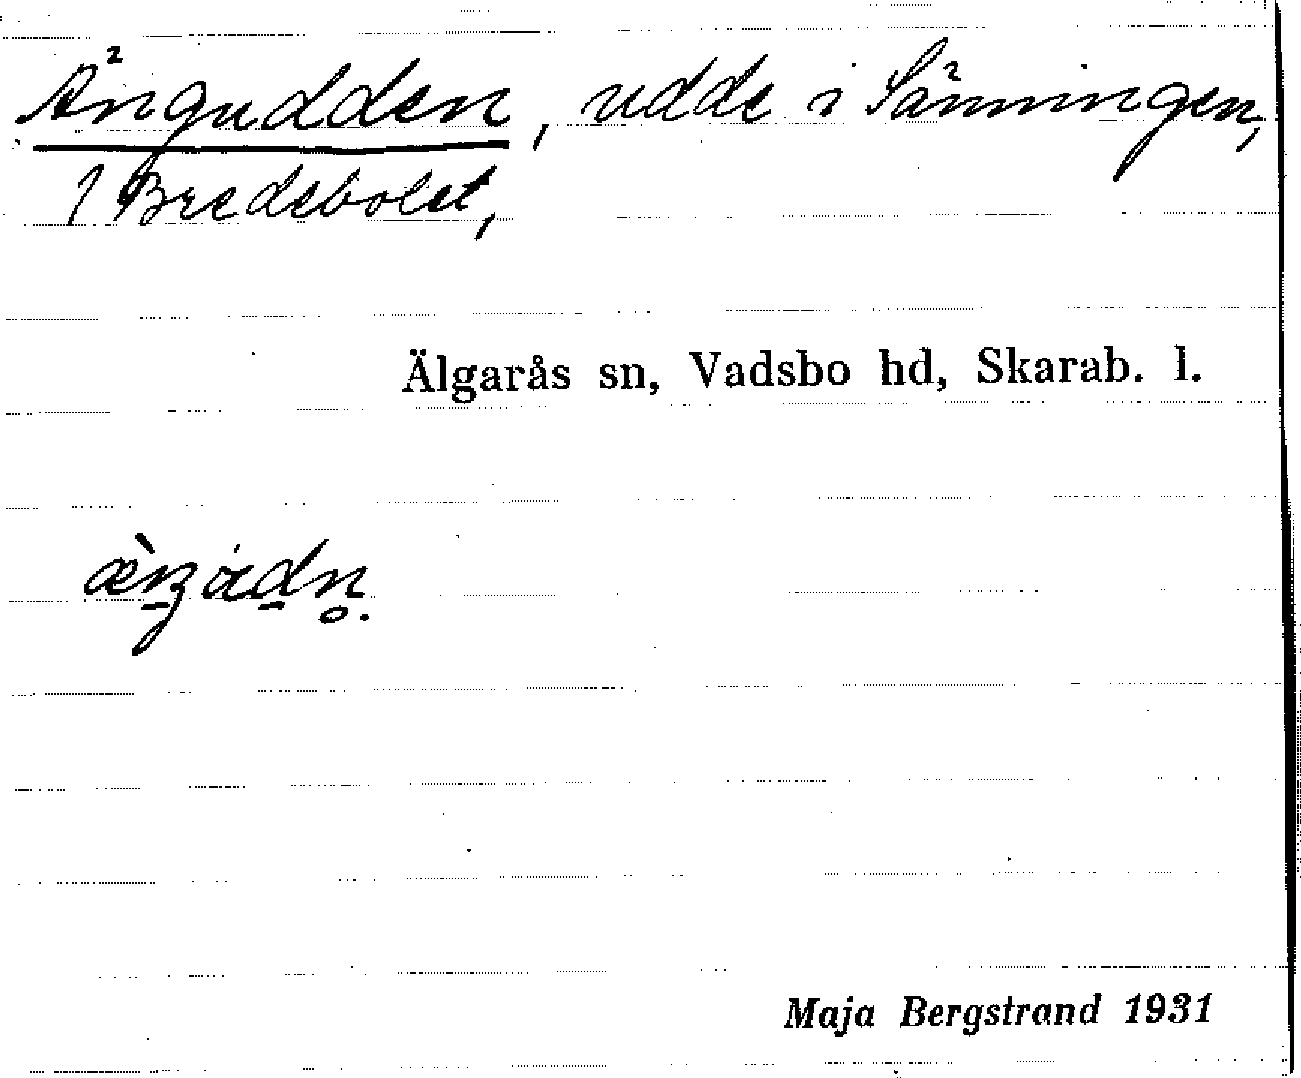 Ängudden, udde i Sänningen,
i Bredebolet,
Älgarås sn, Vadsbo hd, Skarab. l.
Maja Bergstrand 1931